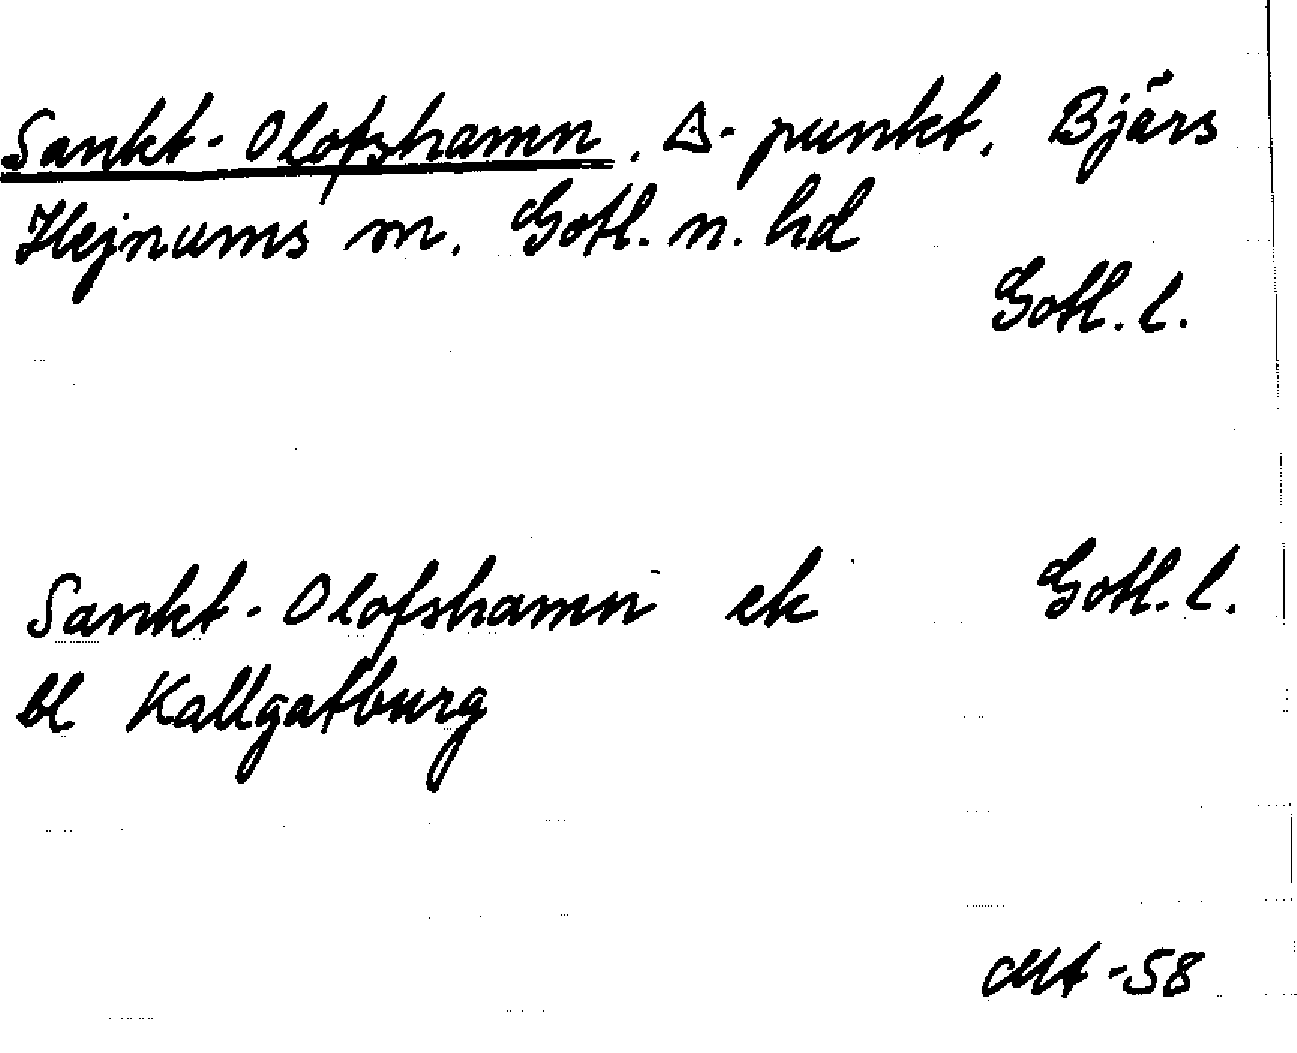 Sankt-Olofshamn, △-punkt, Bjärs
Hejnums sn, Gotl. n. hd
Gotl. l.
Sankt-Olofshamn ek Gotl. l.
bl Kallgatburg
-58